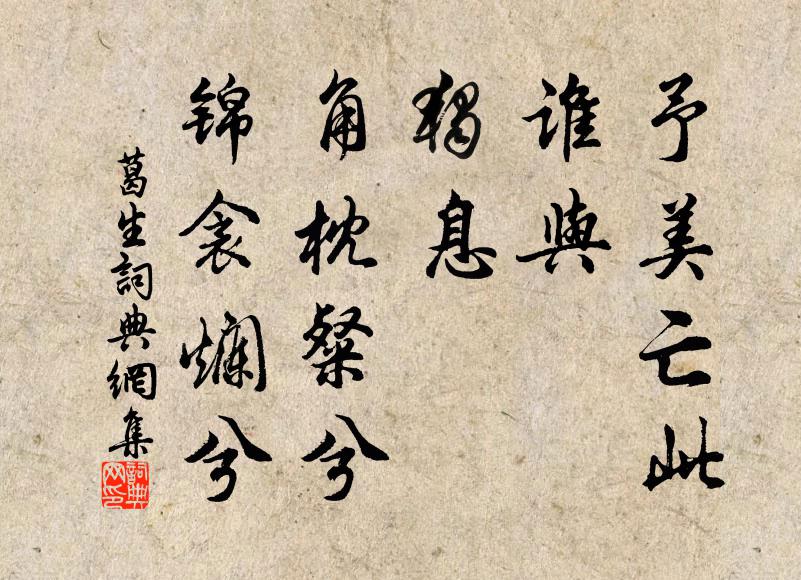 予美亡此
誰與
獨息
角枕粲兮
錦衾爛兮
葛生詞典網集
詞典网印